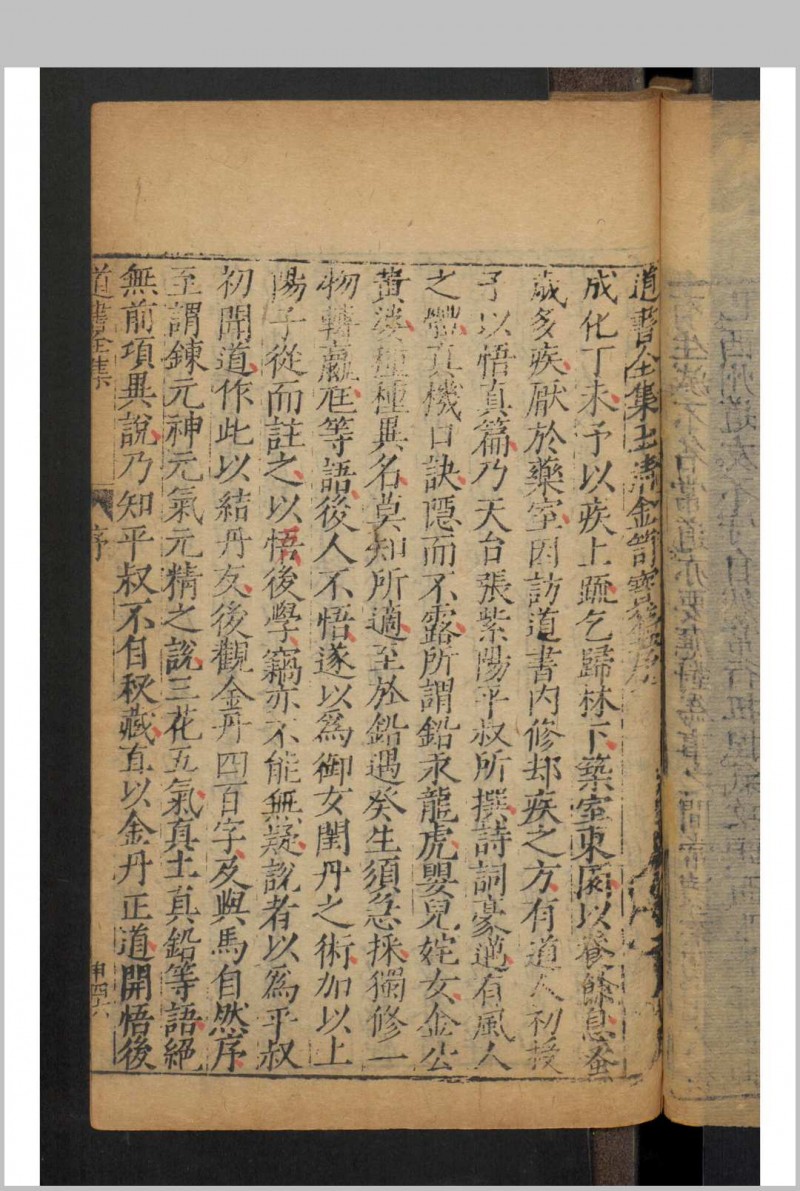 道書全集玉清金笥寶籙序
成化丁未予以疾上疏乞歸林下築室東園以養餘息蚤
歲多疾厭於藥室因訪道書內修却疾之方有道人初授
予以悟真篇乃天台張紫陽平叔所撰詩詞豪邁有風人
之體真機口訣隱而不露所謂鉛汞龍虎嬰兒姹女金公
黃婆種種異名莫知所適至於鉛遇癸生須急採獨修一
物轉羸尫等語後人不悟遂以為御女閨丹之術加以上
陽子從而註之以悟後學竊亦不能無疑說者以為平叔
初開道作此以結丹友後觀金丹四百字及與馬自然序
至謂鍊元神元氣元精之說三花五氣真土真鉛等語絕
無前項異說乃知平叔不自秘藏直以金丹正道開悟後
道書全集 序